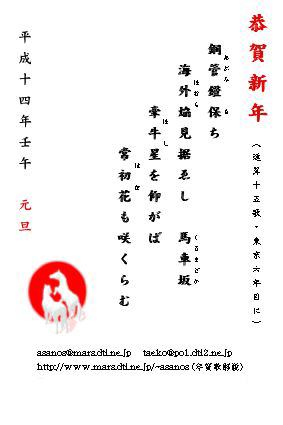 恭賀新年
(通算十五歌・東京六年目に)
銅管鐙保ち
海外焔見据ゑし 馬車坂
牽牛星を仰がば
常初花も咲くらむ
平成十四年壬午 元旦
asanos@mars.dti.ne.jp taeko@po1.dti2.ne.jp
http://www.mars.dti.ne.jp/~asanos (年賀歌解説)